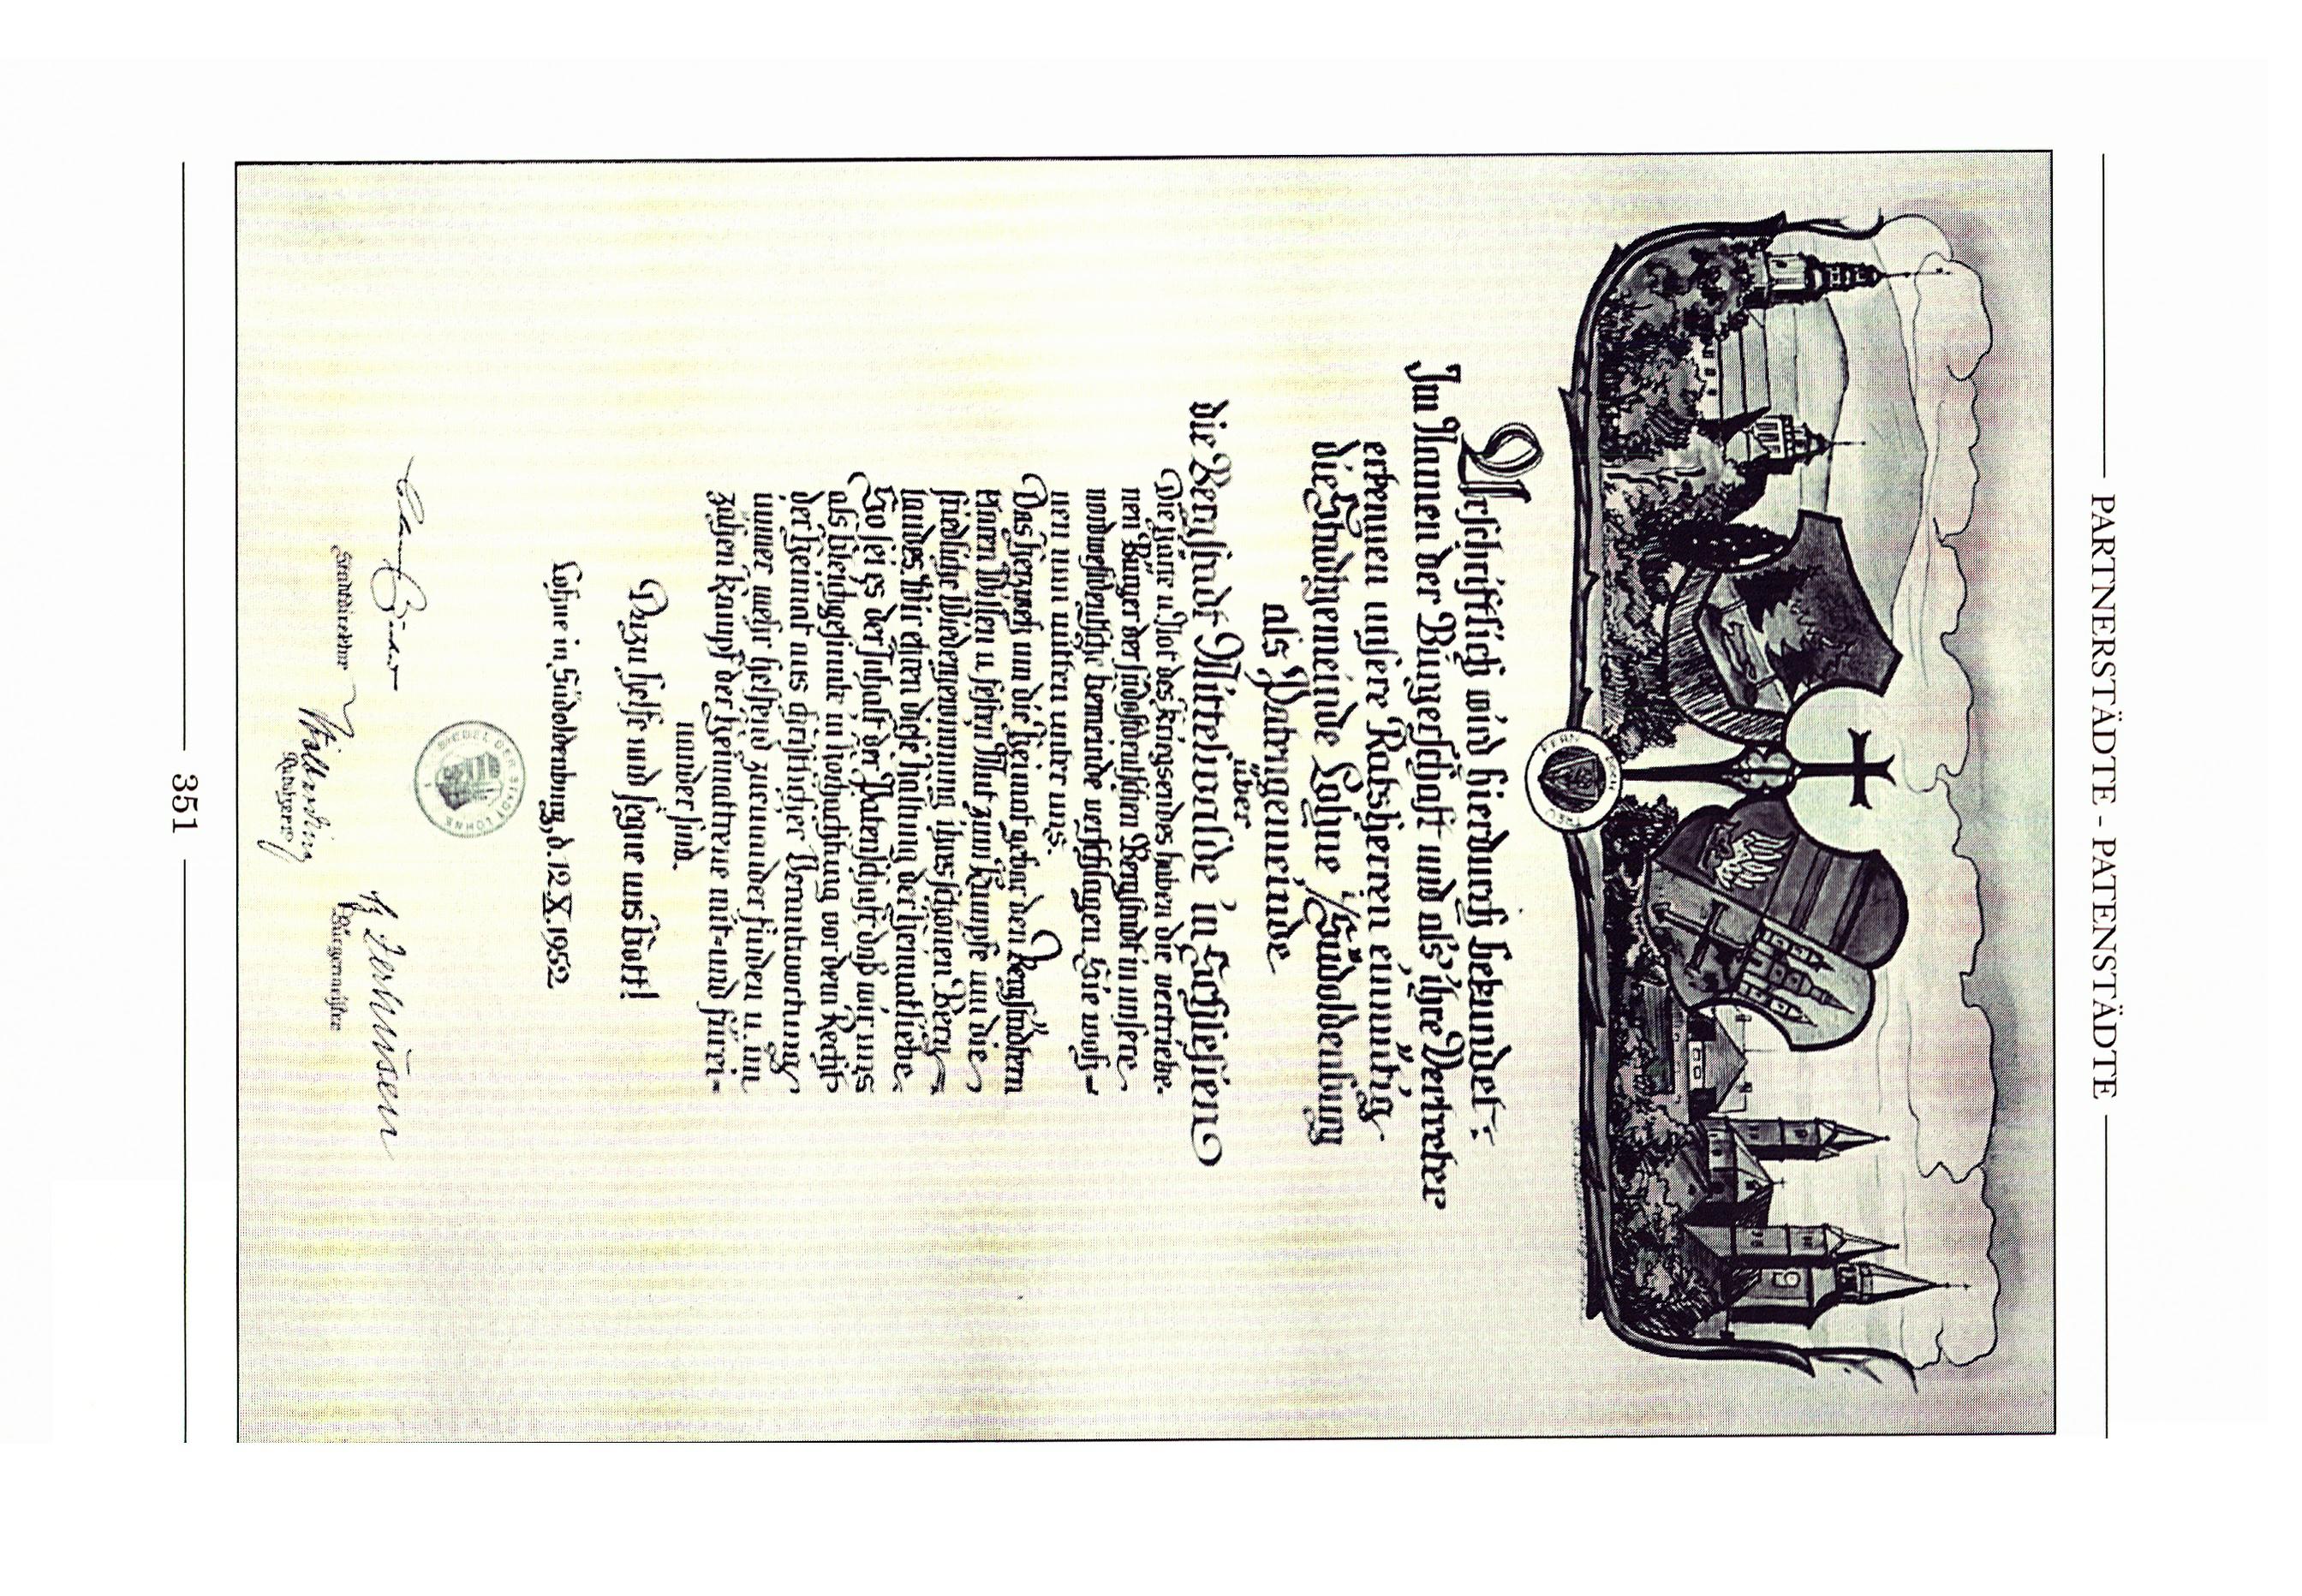 PARTNERSTÄDTE - PATENSTÄDTE
Urschriftlich wird hierdurch bekundet:
Im Namen der Bürgerschaft und als ihre Vertreter
erkennen unsere Ratsherren einmütig
die Stadtgemeinde Lohne i/Südoldenburg
als Patengemeinde
über
die Bergstadt Mittelwalde in Schlesien
Die Jahre u. Not des Kriegsendes haben die vertriebe-
nen Bürger der südostdeutschen Bergstadt in unsere
nordwestdeutsche Gemeinde verschlagen. Sie woh-
nen nun mitten unter uns.
Das Heimweh um die Heimat gebar den Bergstädtern
klaren Willen u. festen Mut zum Kampfe um die
friedliche Wiedergewinnung ihres schönen Berg-
landes. Wir ehren diese Haltung der Heimatliebe.
So sei es der Inhalt der Patenschaft daß wir uns
als Gleichgesinnte in Hochachtung vor dem Recht
der Heimat aus christlicher Verantwortung
immer mehr helfend zueinander finden u. im
zähen Kampf der Heimattreue mit- und fürei-
nander sind.
Dazu helfe und segne uns Gott!
Lohne in Südoldenburg, d. 12. X. 1952
SIEGEL DER STADT LOHNE
Stadtdirektor
Ratsherr
Bürgermeister
351